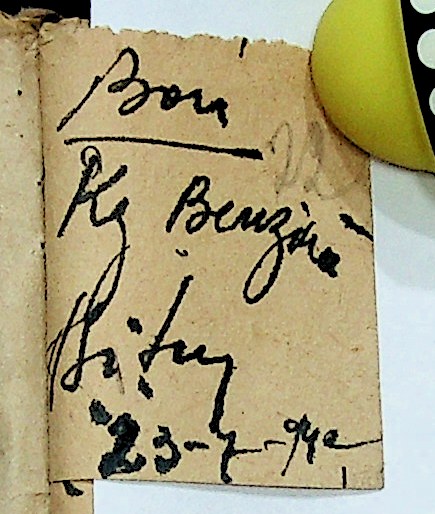 Bon
Kg Benzină
23-7-942